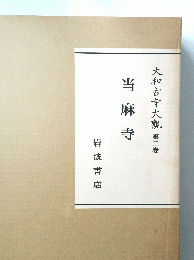 大和古寺大観 第二巻
当麻寺
岩波書店